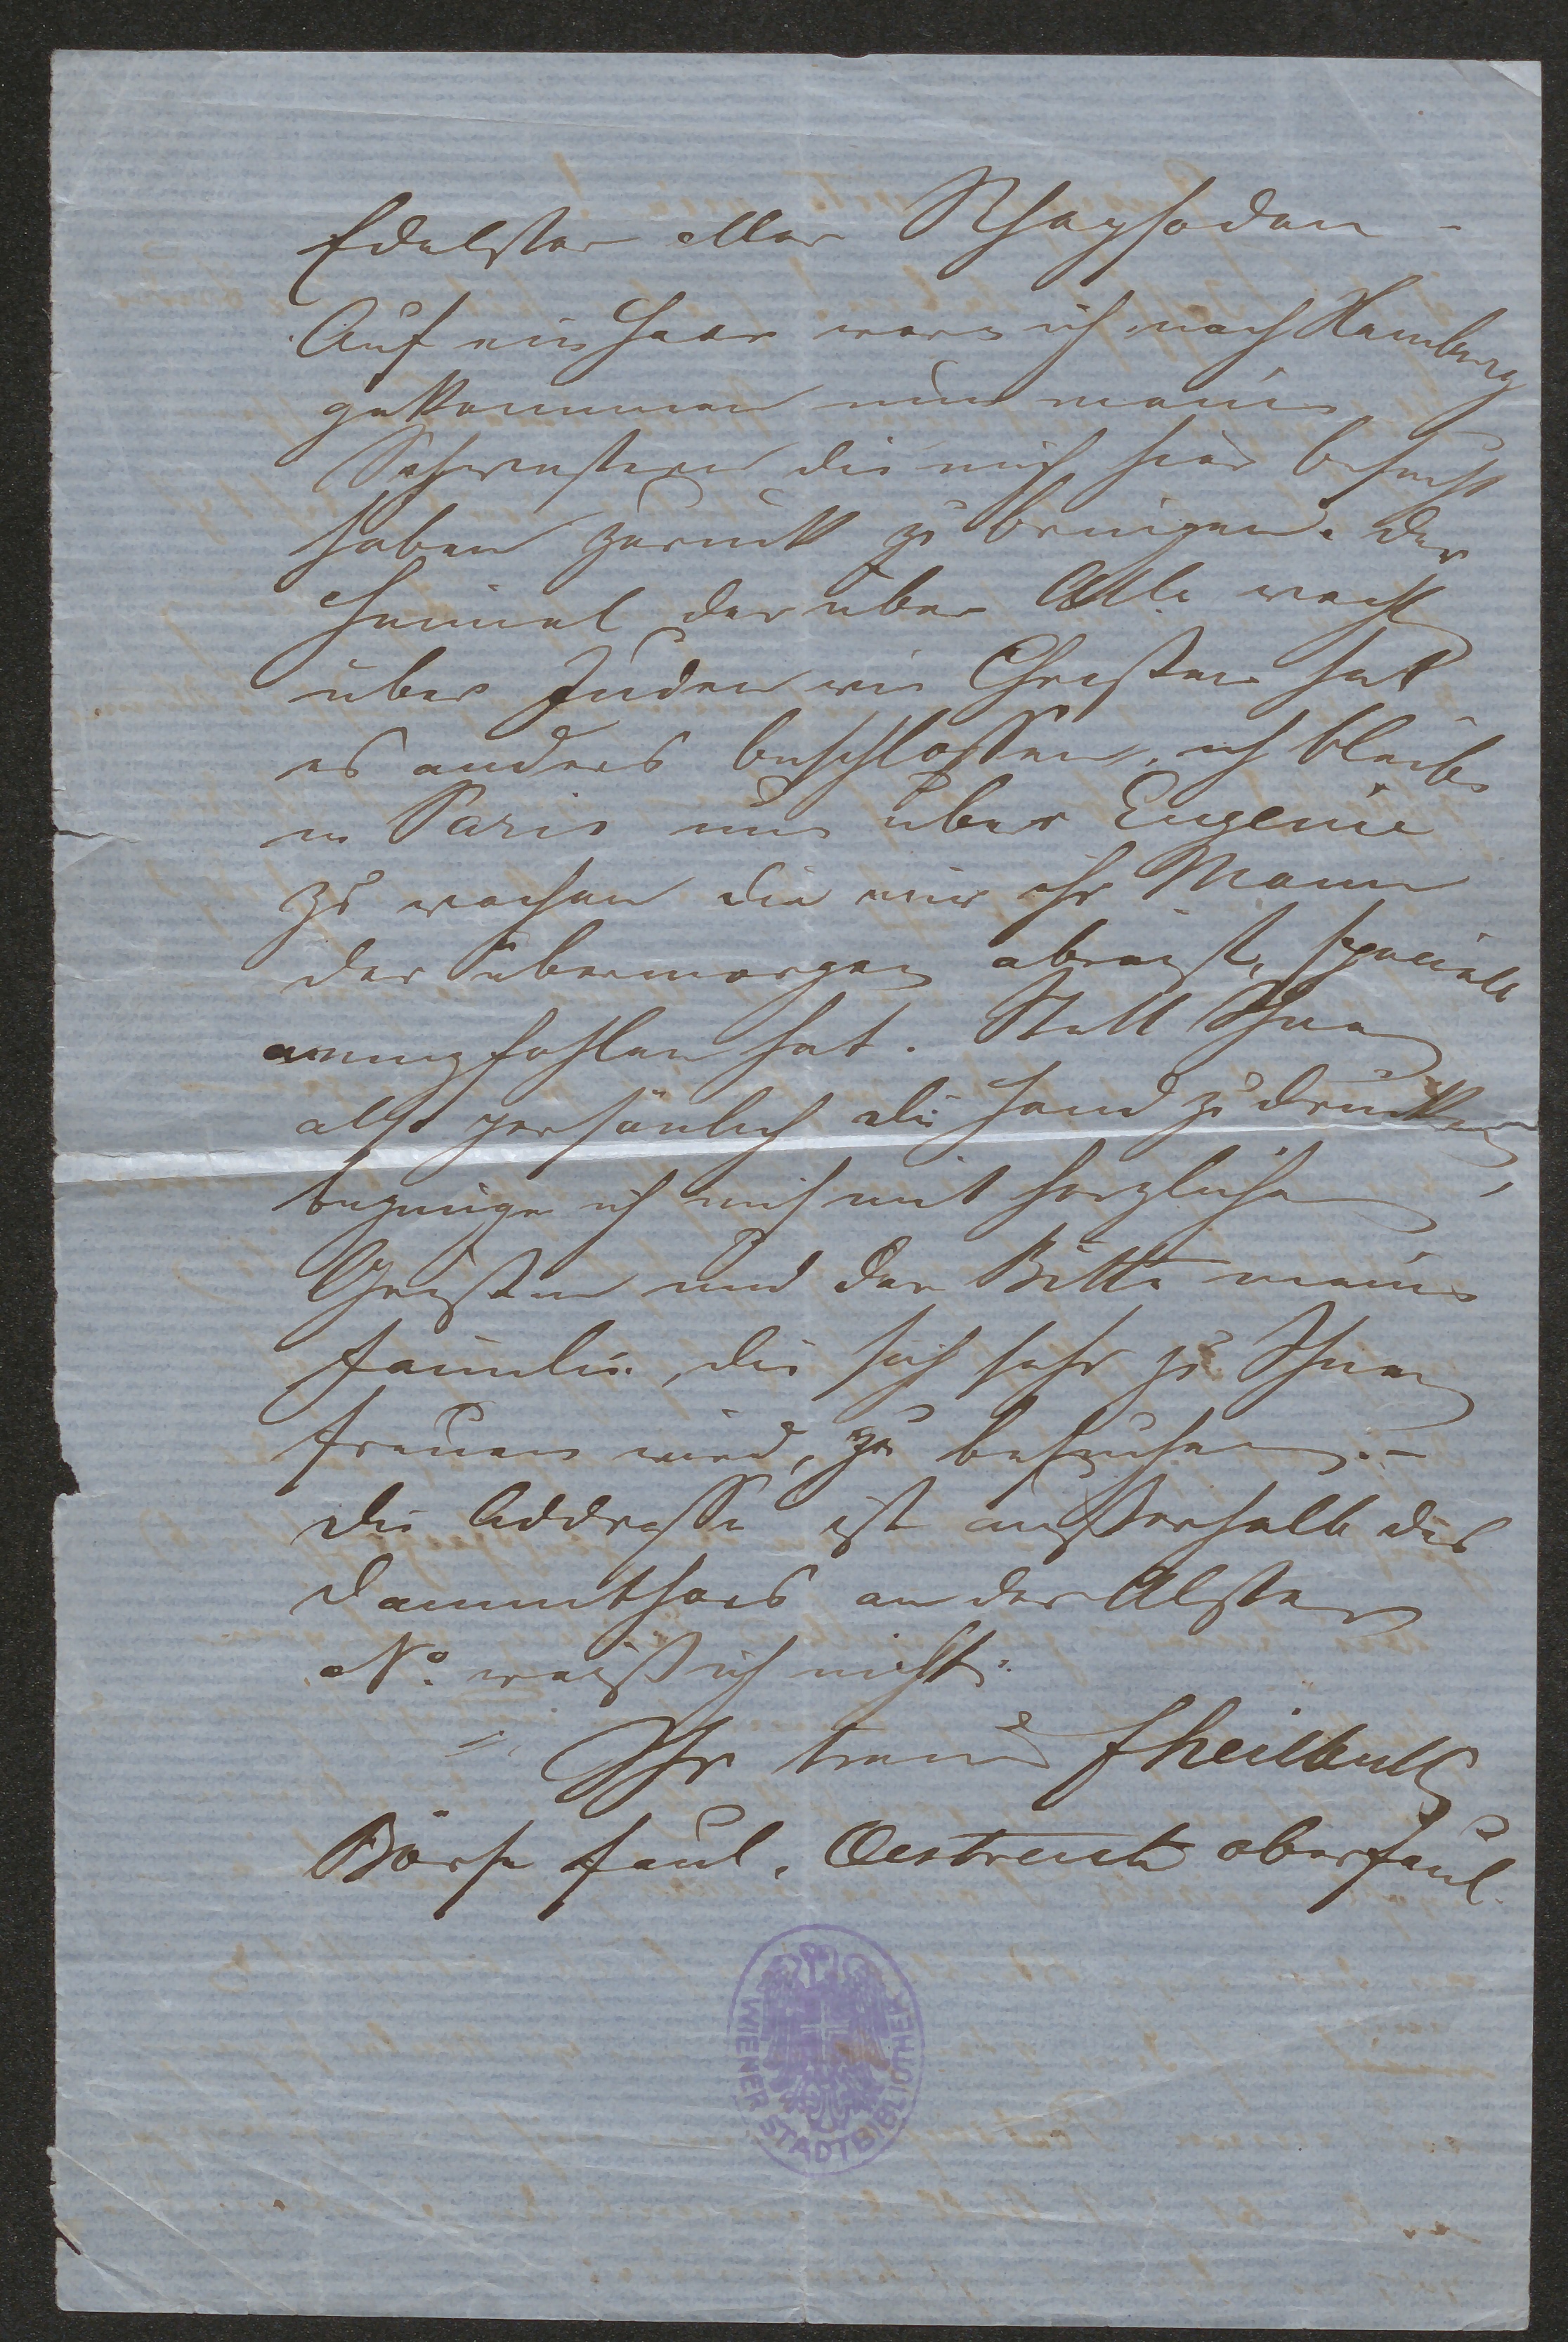 Edelster aller Rhapsoden -
Auf ein Haar wär ich nach Hamburg
gekommen um meine
Schwestern die mich hier besucht
haben zurück zu bringen. Der
Himmel der über Alle wacht
über Juden wie Christen hat
es anders beschlossen, ich bleibe
in Paris um über Eugenie
zu wachen die mir ihr Mann
der übermorgen abreist, speciell
anempfohlen hat. Statt Ihnen
also persönlich die Hand zu drücken,
begnüge ich mich mit herzlichen
Grüßen und der Bitte meine
Familie, die sich sehr zu Ihnen
freuen wird, zu besuchen. -
Die Addresse ist außerhalb des
Dammthors an der Alster
No. weiß ich nicht.
Ihr treuer FHeilbuth
Börse faul, Oestreich oberfaul.
WIENER STADTBIBLIOTHEK